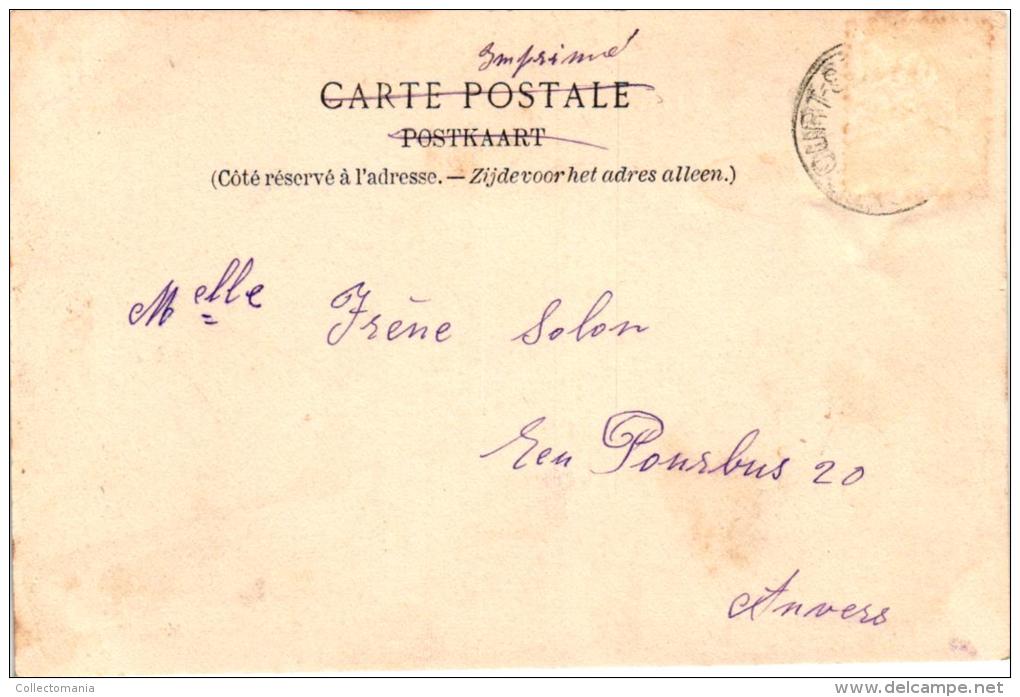 Imprimé
CARTE POSTALE
POSTKAART
(Côté réservé à l'adresse. — Zijde voor het adres alleen.)
Melle Irène Solon
Pourbus 20
Anvers
Collectomania
delcampe.net